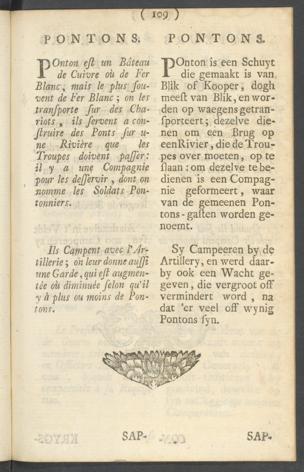 ( 109 )
PONTONS.
POnton est un Bâteau
de Cuivre où de Fer
Blanc, mais le plus sou-
vent de Fer Blanc; on les
transporte sur des Cha-
riots, ils servent a con-
struire des Ponts sur u-
ne Rivière que les
Troupes doivent passer:
il y a une Compagnie
pour les desservir, dont on
nomme les Soldats Pon-
tonniers.
Ils Campent avec l'Ar-
tillerie; on leur donne aussi
une Garde, qui est augmen-
tée où diminuée selon qu'il
y à plus ou moins de Pon-
tons.
SAP-
PONTONS.
POnton is een Schuyt
die gemaakt is van
Blik of Kooper, dogh
meest van Blik, en wor-
den op waegens getran-
sporteert; dezelve die-
nen om een Brug op
een Rivier, die de Trou-
pes over moeten, op te
slaan: om dezelve te be-
dienen is een Compag-
nie geformeert, waar
van de gemeenen Pon-
tons-gasten worden ge-
noemt.
Sy Campeeren by de
Artillery, en werd daar-
by ook een Wacht ge-
geven, die vergroot off
vermindert word, na
dat 'er veel off wynig
Pontons syn.
SAP-